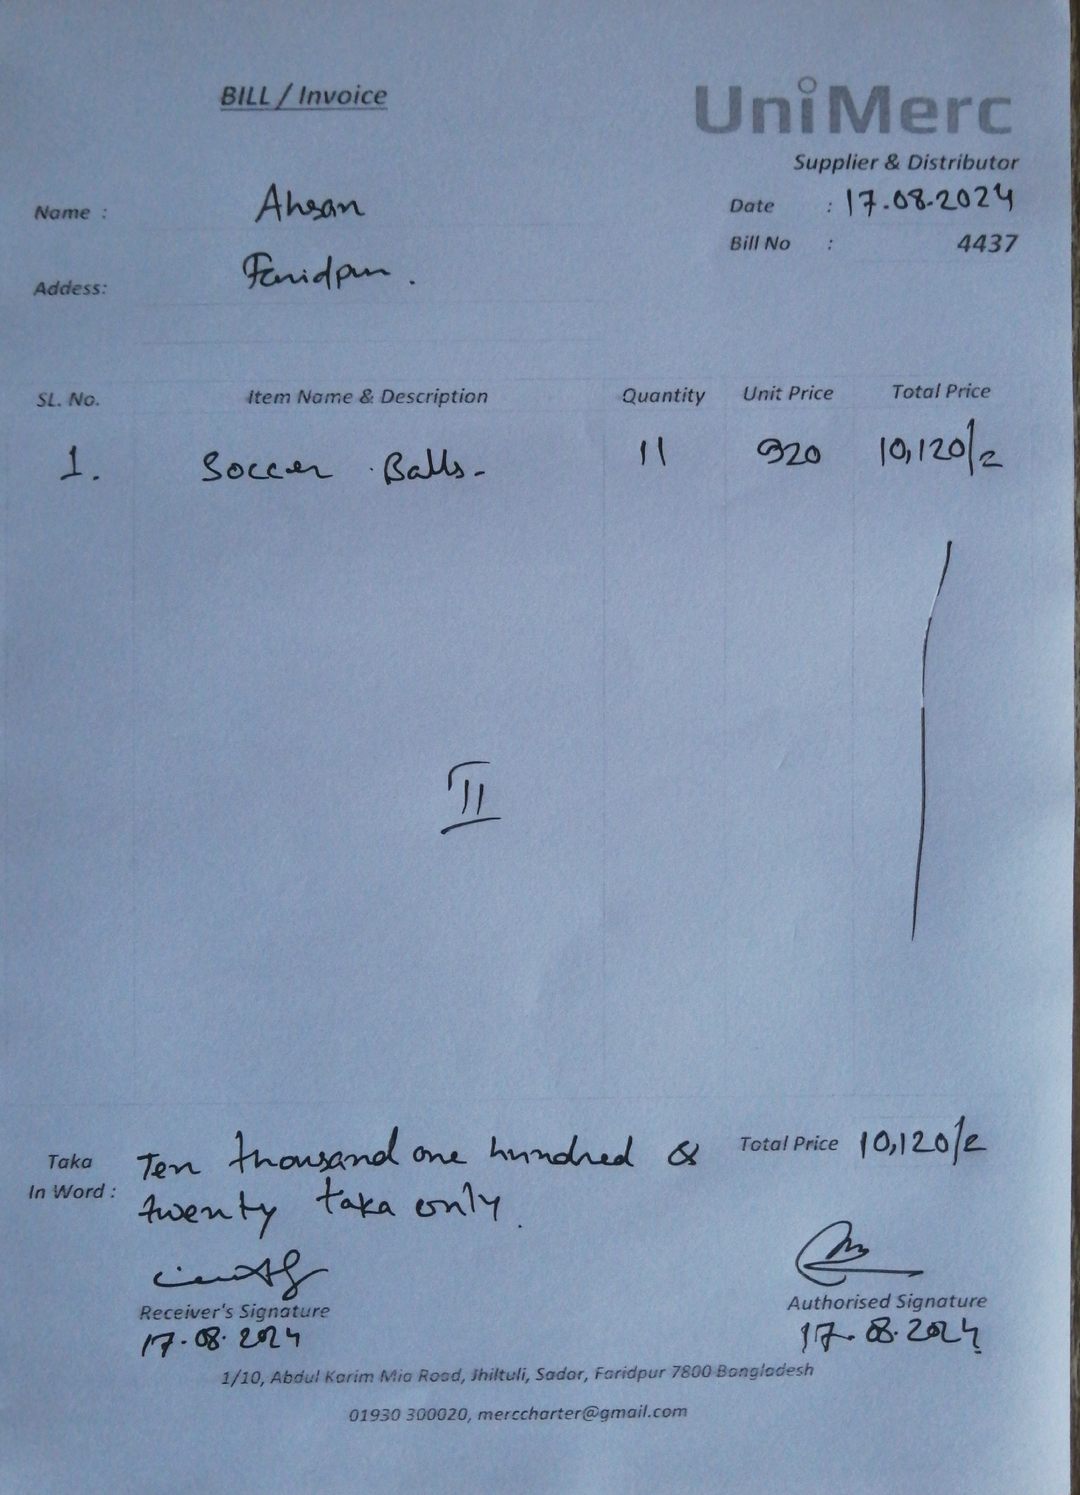 BILL / Invoice
UniMerc
Supplier & Distributor
Name : Ahsan
Date : 17.08.2024
Bill No : 4437
Addess: Faridpur.
SL. No. Item Name & Description Quantity Unit Price Total Price
1. Soccer Balls- 11 920 10,120/=
11
Taka In Word : Ten thousand one hundred & Total Price 10,120/=
twenty taka only.
Receiver's Signature Authorised Signature
17.08.2024 17.08.2024
1/10, Abdul Karim Mia Road, Jhiltuli, Sadar, Faridpur 7800 Bangladesh
01930 300020, merccharter@gmail.com